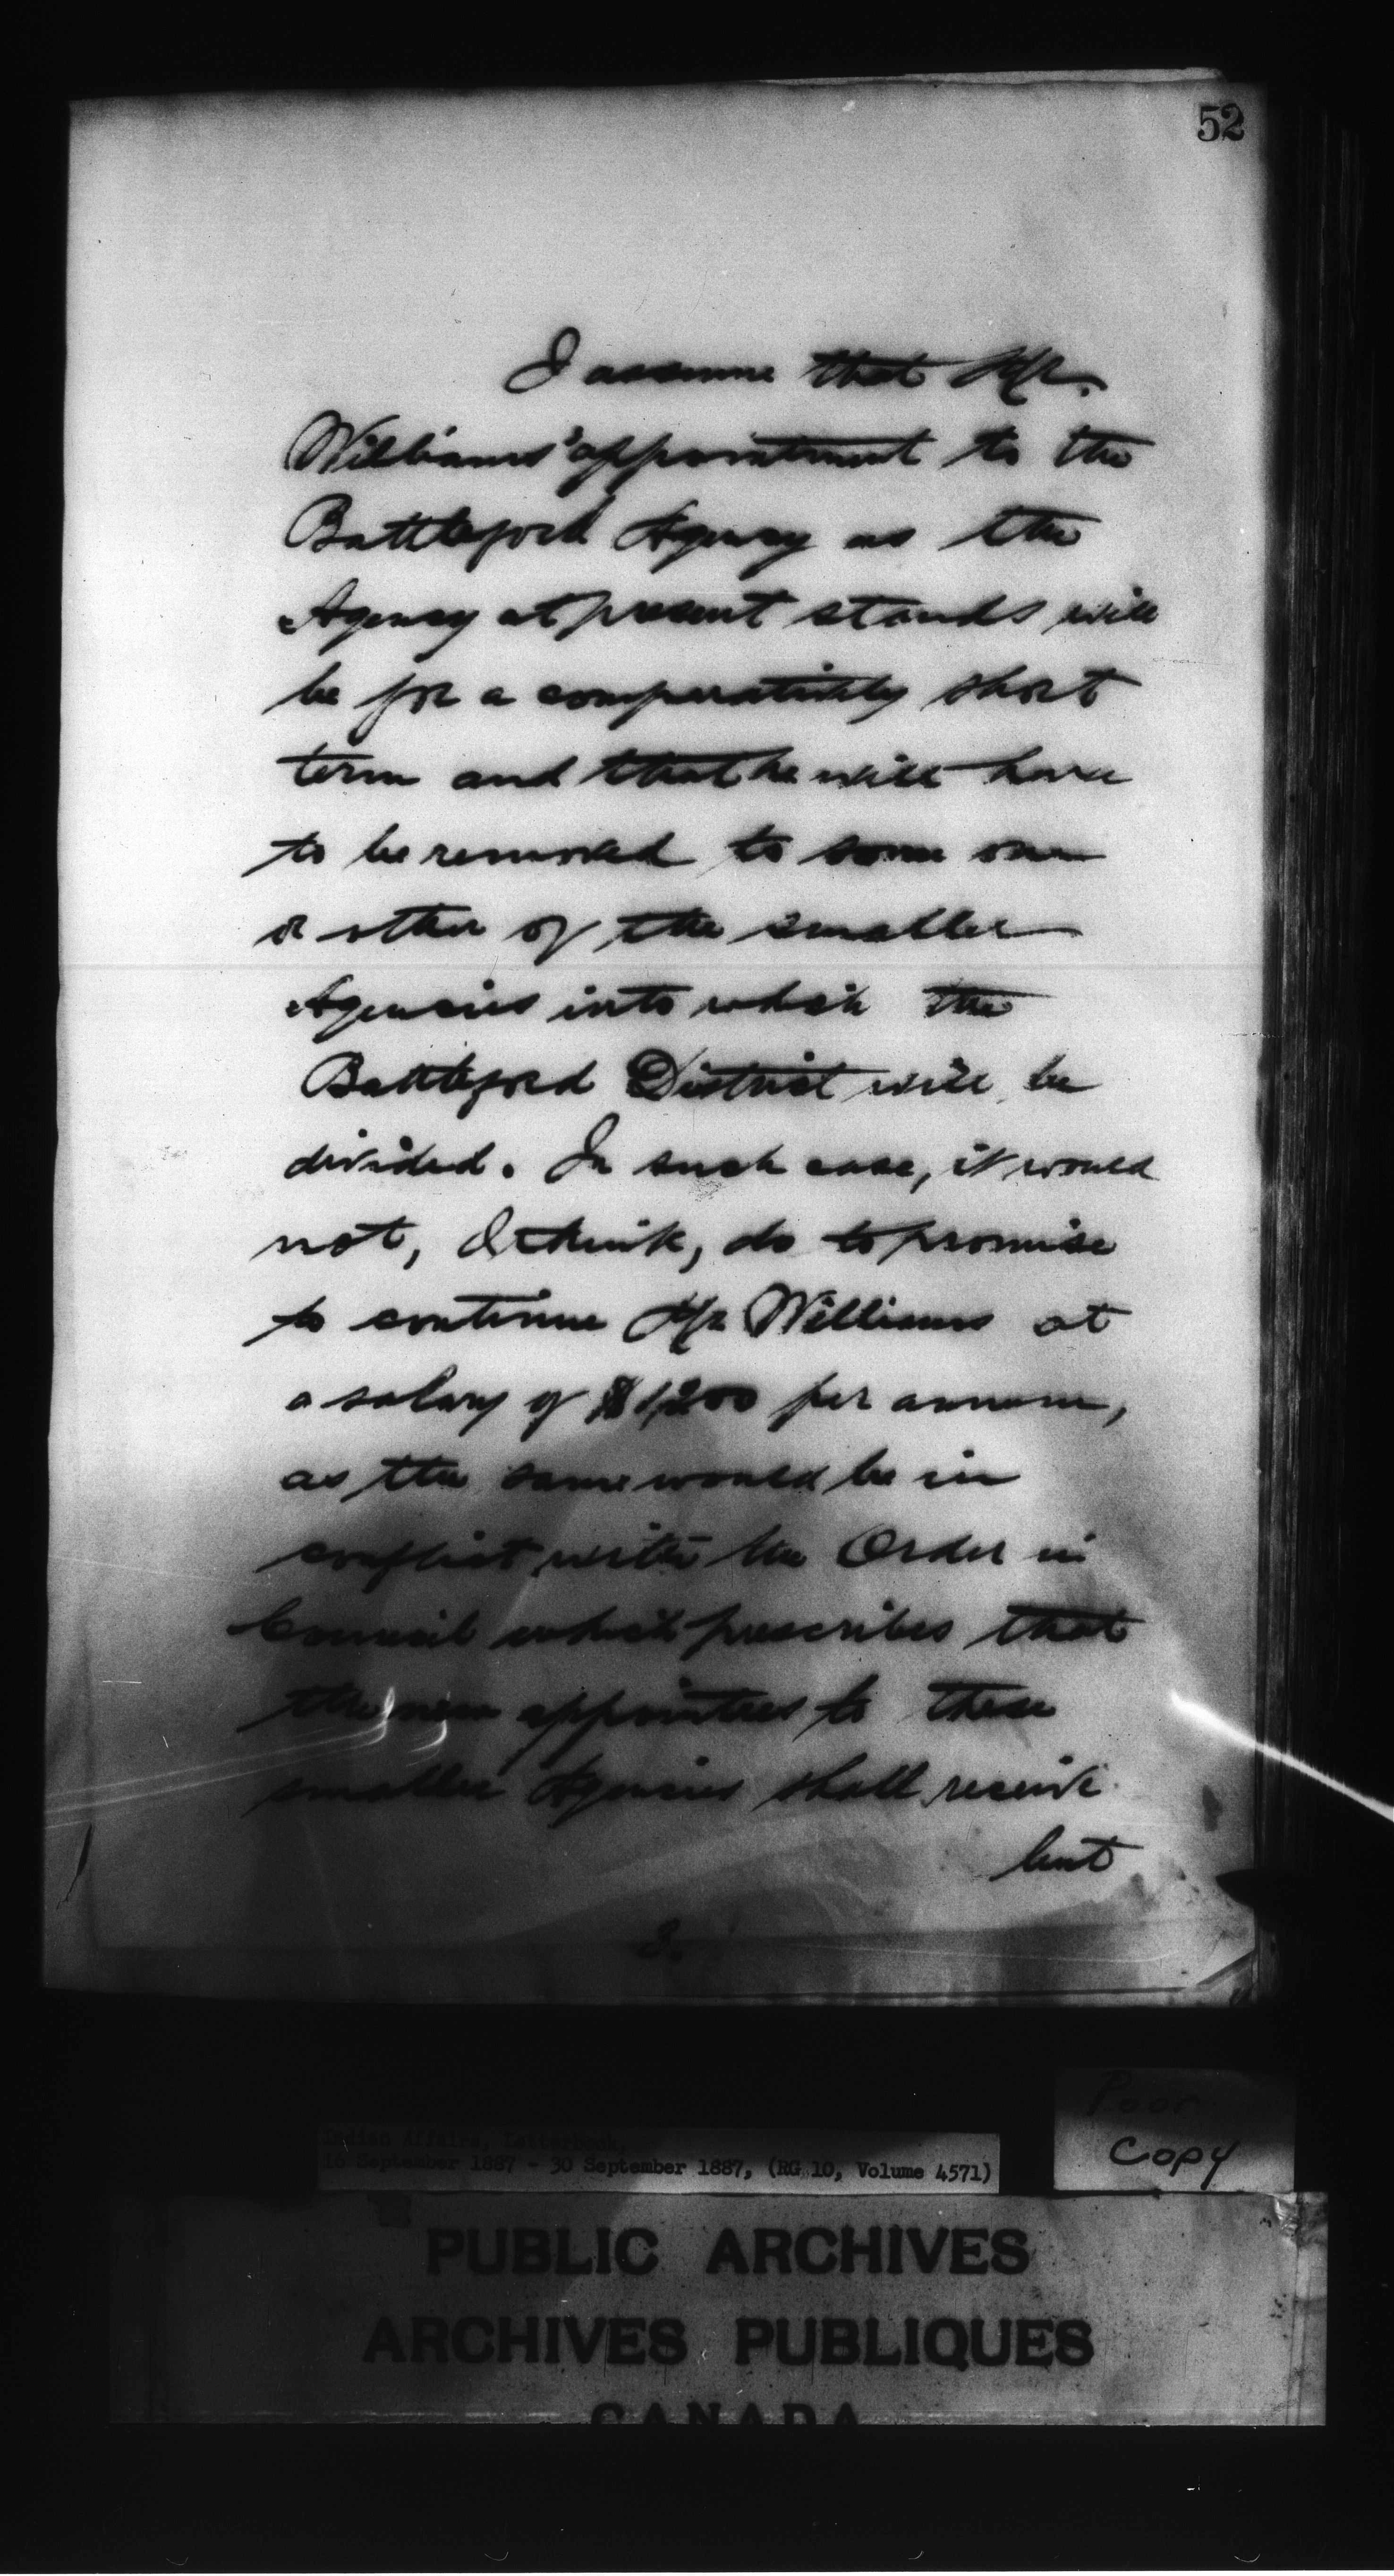 52
I assume that Mr.
Williams' appointment to the
Battleford Agency as the
Agency at present stands will
be for a comparatively short
term and that he will have
to be removed to some one
or other of the smaller
Agencies into which the
Battleford District will be
divided. In such case, it would
not, I think, do to promise
to continue Mr Williams at
a salary of $1,200 per annum,
as the same would be in
conflict with the Order in
Council which prescribes that
the new appointees to these
smaller Agencies shall receive
but
3.
Poor
Copy
Indian Affairs, Letterbook,
16 September 1887 - 30 September 1887, (RG 10, Volume 4571)
PUBLIC ARCHIVES
ARCHIVES PUBLIQUES
CANADA